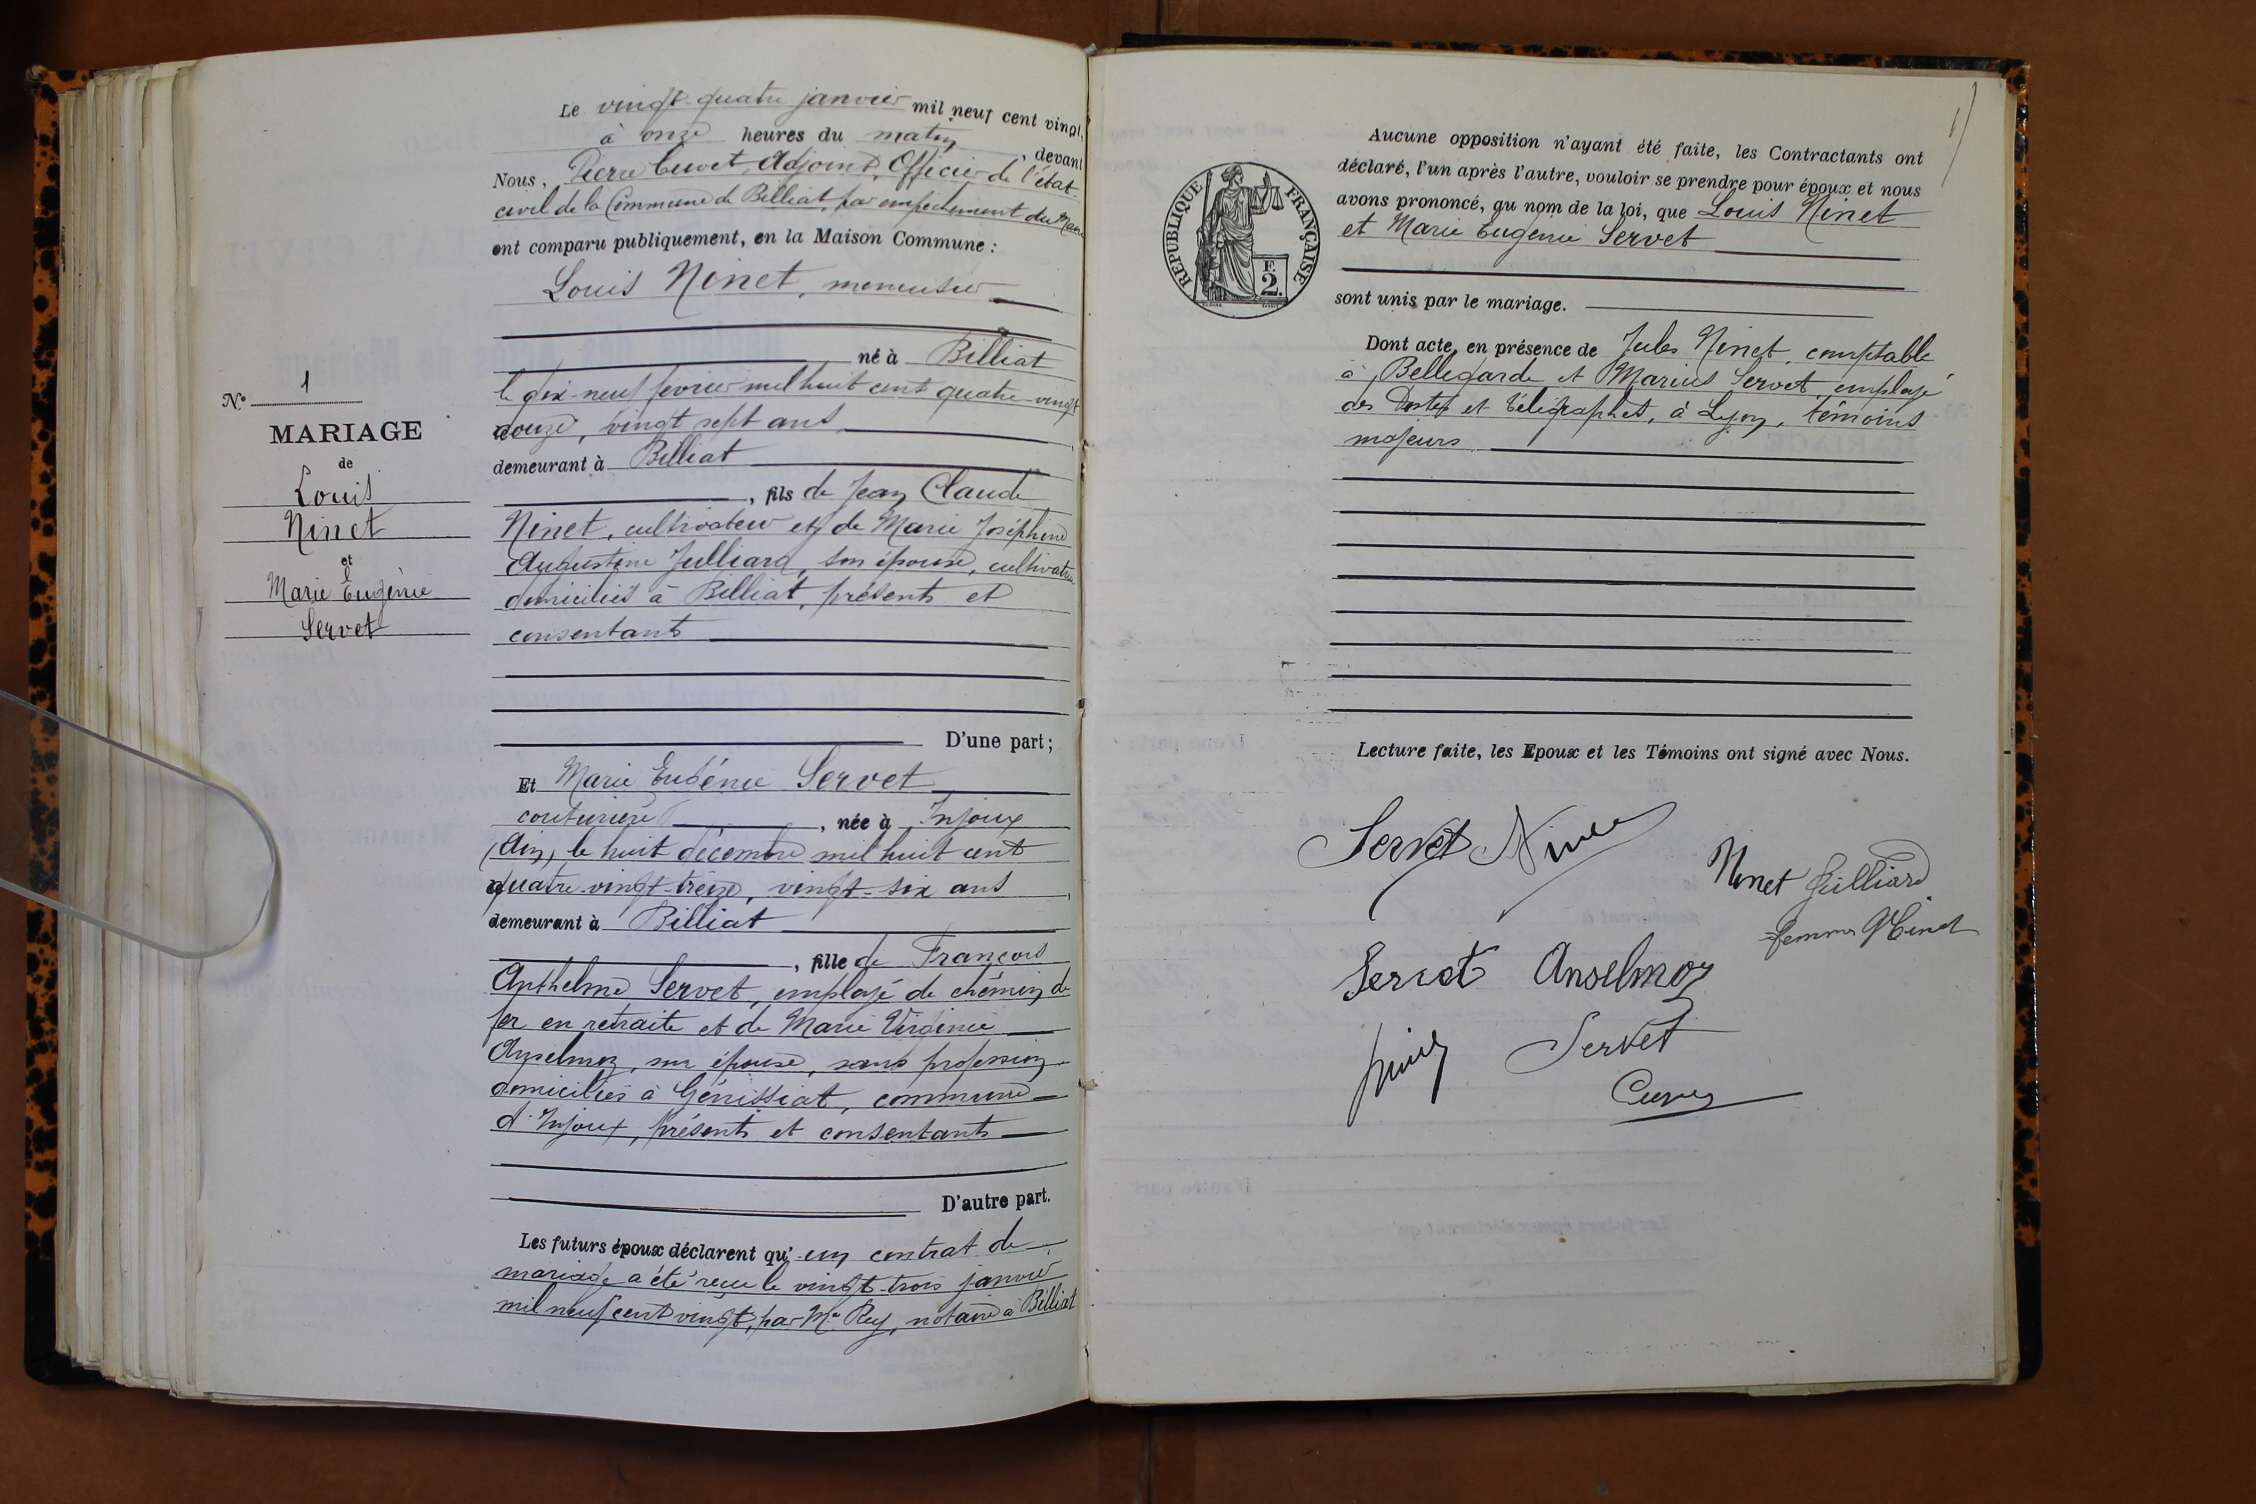 Le vingt-quatre janvier mil neuf cent vingt,
à onze heures du matin, devant
Nous, Pierre Cuvet, Adjoint, Officier de l'état
civil de la Commune de Billiat, par empêchement du Maire
ont comparu publiquement, en la Maison Commune :
Louis Ninet, menuisier
né à Billiat
le dix-neuf février mil huit cent quatre-vingt
douze, vingt sept ans
demeurant à Billiat
, fils de Jean Claude
Ninet, cultivateur et de Marie Joséphine
Augustine Julliard, son épouse, cultivatrice
domiciliés à Billiat, présents et
consentants
D'une part;
N° 1
MARIAGE
de
Louis
Ninet
et
Marie Eugénie
Servet
Et Marie Eugénie Servet
couturière, née à Injoux
(Ain, le huit décembre mil huit cent
quatre-vingt-treize, vingt-six ans
demeurant à Billiat
, fille de François
Anthelme Servet, employé de chemin de
fer en retraite et de Marie Virginie
Anselmoz, son épouse, sans profession
domiciliés à Génissiat, commune
d'Injoux, présents et consentants
D'autre part.
Les futurs époux déclarent qu'un contrat de
mariage a été reçu le vingt-trois janvier
mil neuf cent vingt, par Me Rey, notaire à Billiat
Aucune opposition n'ayant été faite, les Contractants ont
déclaré, l'un après l'autre, vouloir se prendre pour époux et nous
avons prononcé, au nom de la loi, que Louis Ninet
et Marie Eugénie Servet
sont unis par le mariage.
RÉPUBLIQUE FRANÇAISE
F.
2.
Dont acte, en présence de Jules Ninet, comptable
à Bellegarde et Marius Servet employé
des Postes et Télégraphes, à Lyon, témoins
majeurs
Lecture faite, les Epoux et les Témoins ont signé avec Nous.
Servet Ninet
Ninet Julliard
femme Ninet
Servet Anselmoz
Servet